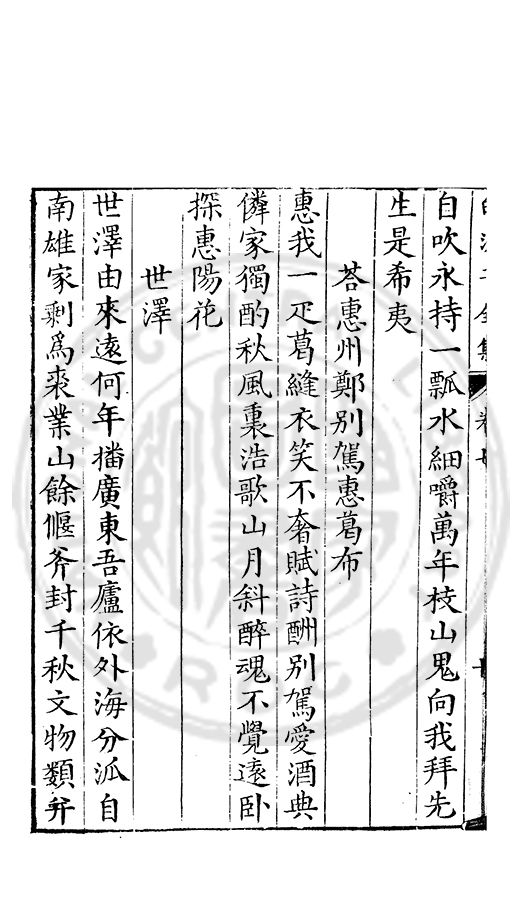 自吹永持一瓢水細嚼萬年枝山鬼向我拜先
生是希夷
荅惠州鄭別駕惠葛布
惠我一疋葛縫衣笑不奢賦詩酬別駕愛酒典
隣家獨酌秋風裏浩歌山月斜醉魂不覺遠卧
探惠陽花
世澤
世澤由來遠何年播廣東吾廬依外海分派自
南雄家剩爲裘業山餘偃斧封千秋文物類弁